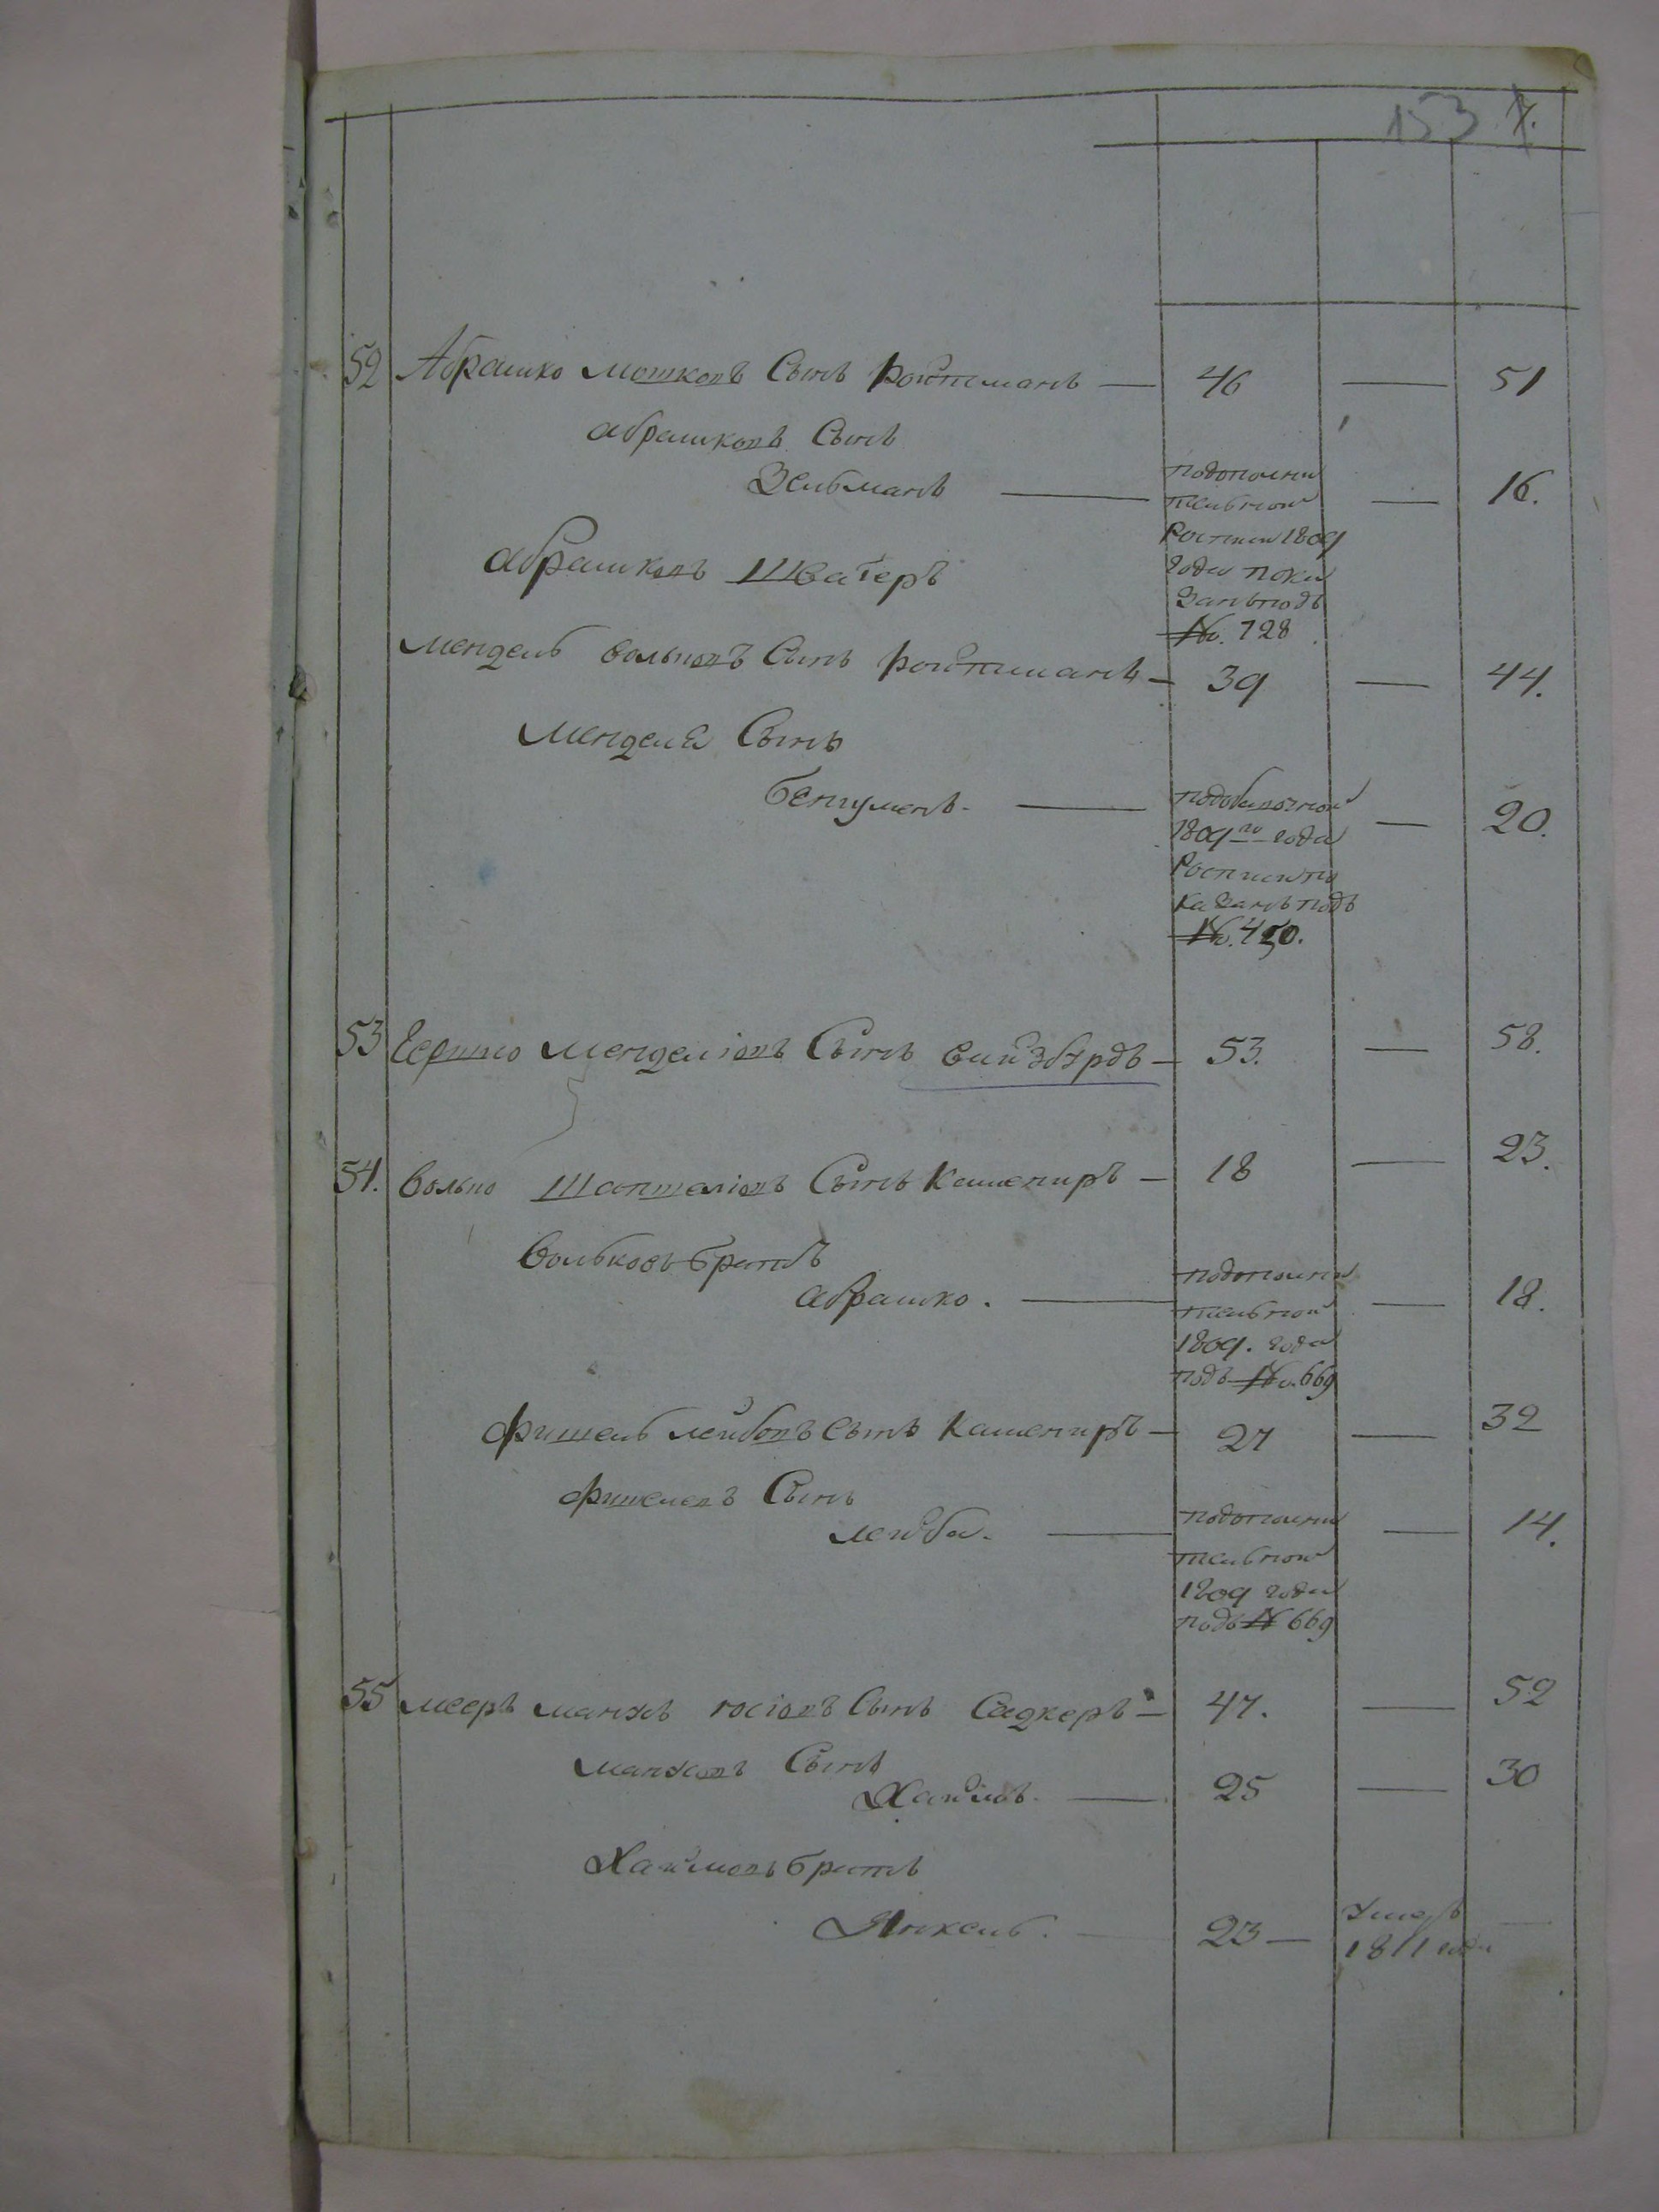 153 7.
52 Абрашко Мошковъ Сынъ Ройтманъ — 46 — 51
Абрашковъ Сынъ
Зельманъ — подополни — 16.
тельной
Росписи 1809
года пока
занъ подъ
No. 728
Абрашковъ Швагеръ
Мендель Вольковъ Сынъ Ройтманъ — 39 — 44.
Менделя Сынъ
Бенуменъ. —  — 20.
1809го года
Росписи по
казанъ подъ
No. 450.
53 Гершко Менделіовъ Сынъ Вайзбурдъ — 53. — 58.
54. Волько Сынъ Кашениръ — 18 — 23.
Вольковъ братъ
Абрашко. — подополни — 18.
тельной
1809. года
подъ No. 669
Фишель Лейбовъ Сынъ Кашениръ — 27 — 32
Фишелевъ Сынъ
Лейба. — подополни — 14.
тельной
1809 года
подъ N 669
55 Мееръ Манхъ Іосіовъ Сынъ Садкеръ — 47. — 52
Манховъ Сынъ
Хаимъ. — 25 — 30
Хаимовъ братъ
Янкель. — 23 — Умеръ —
1811 года